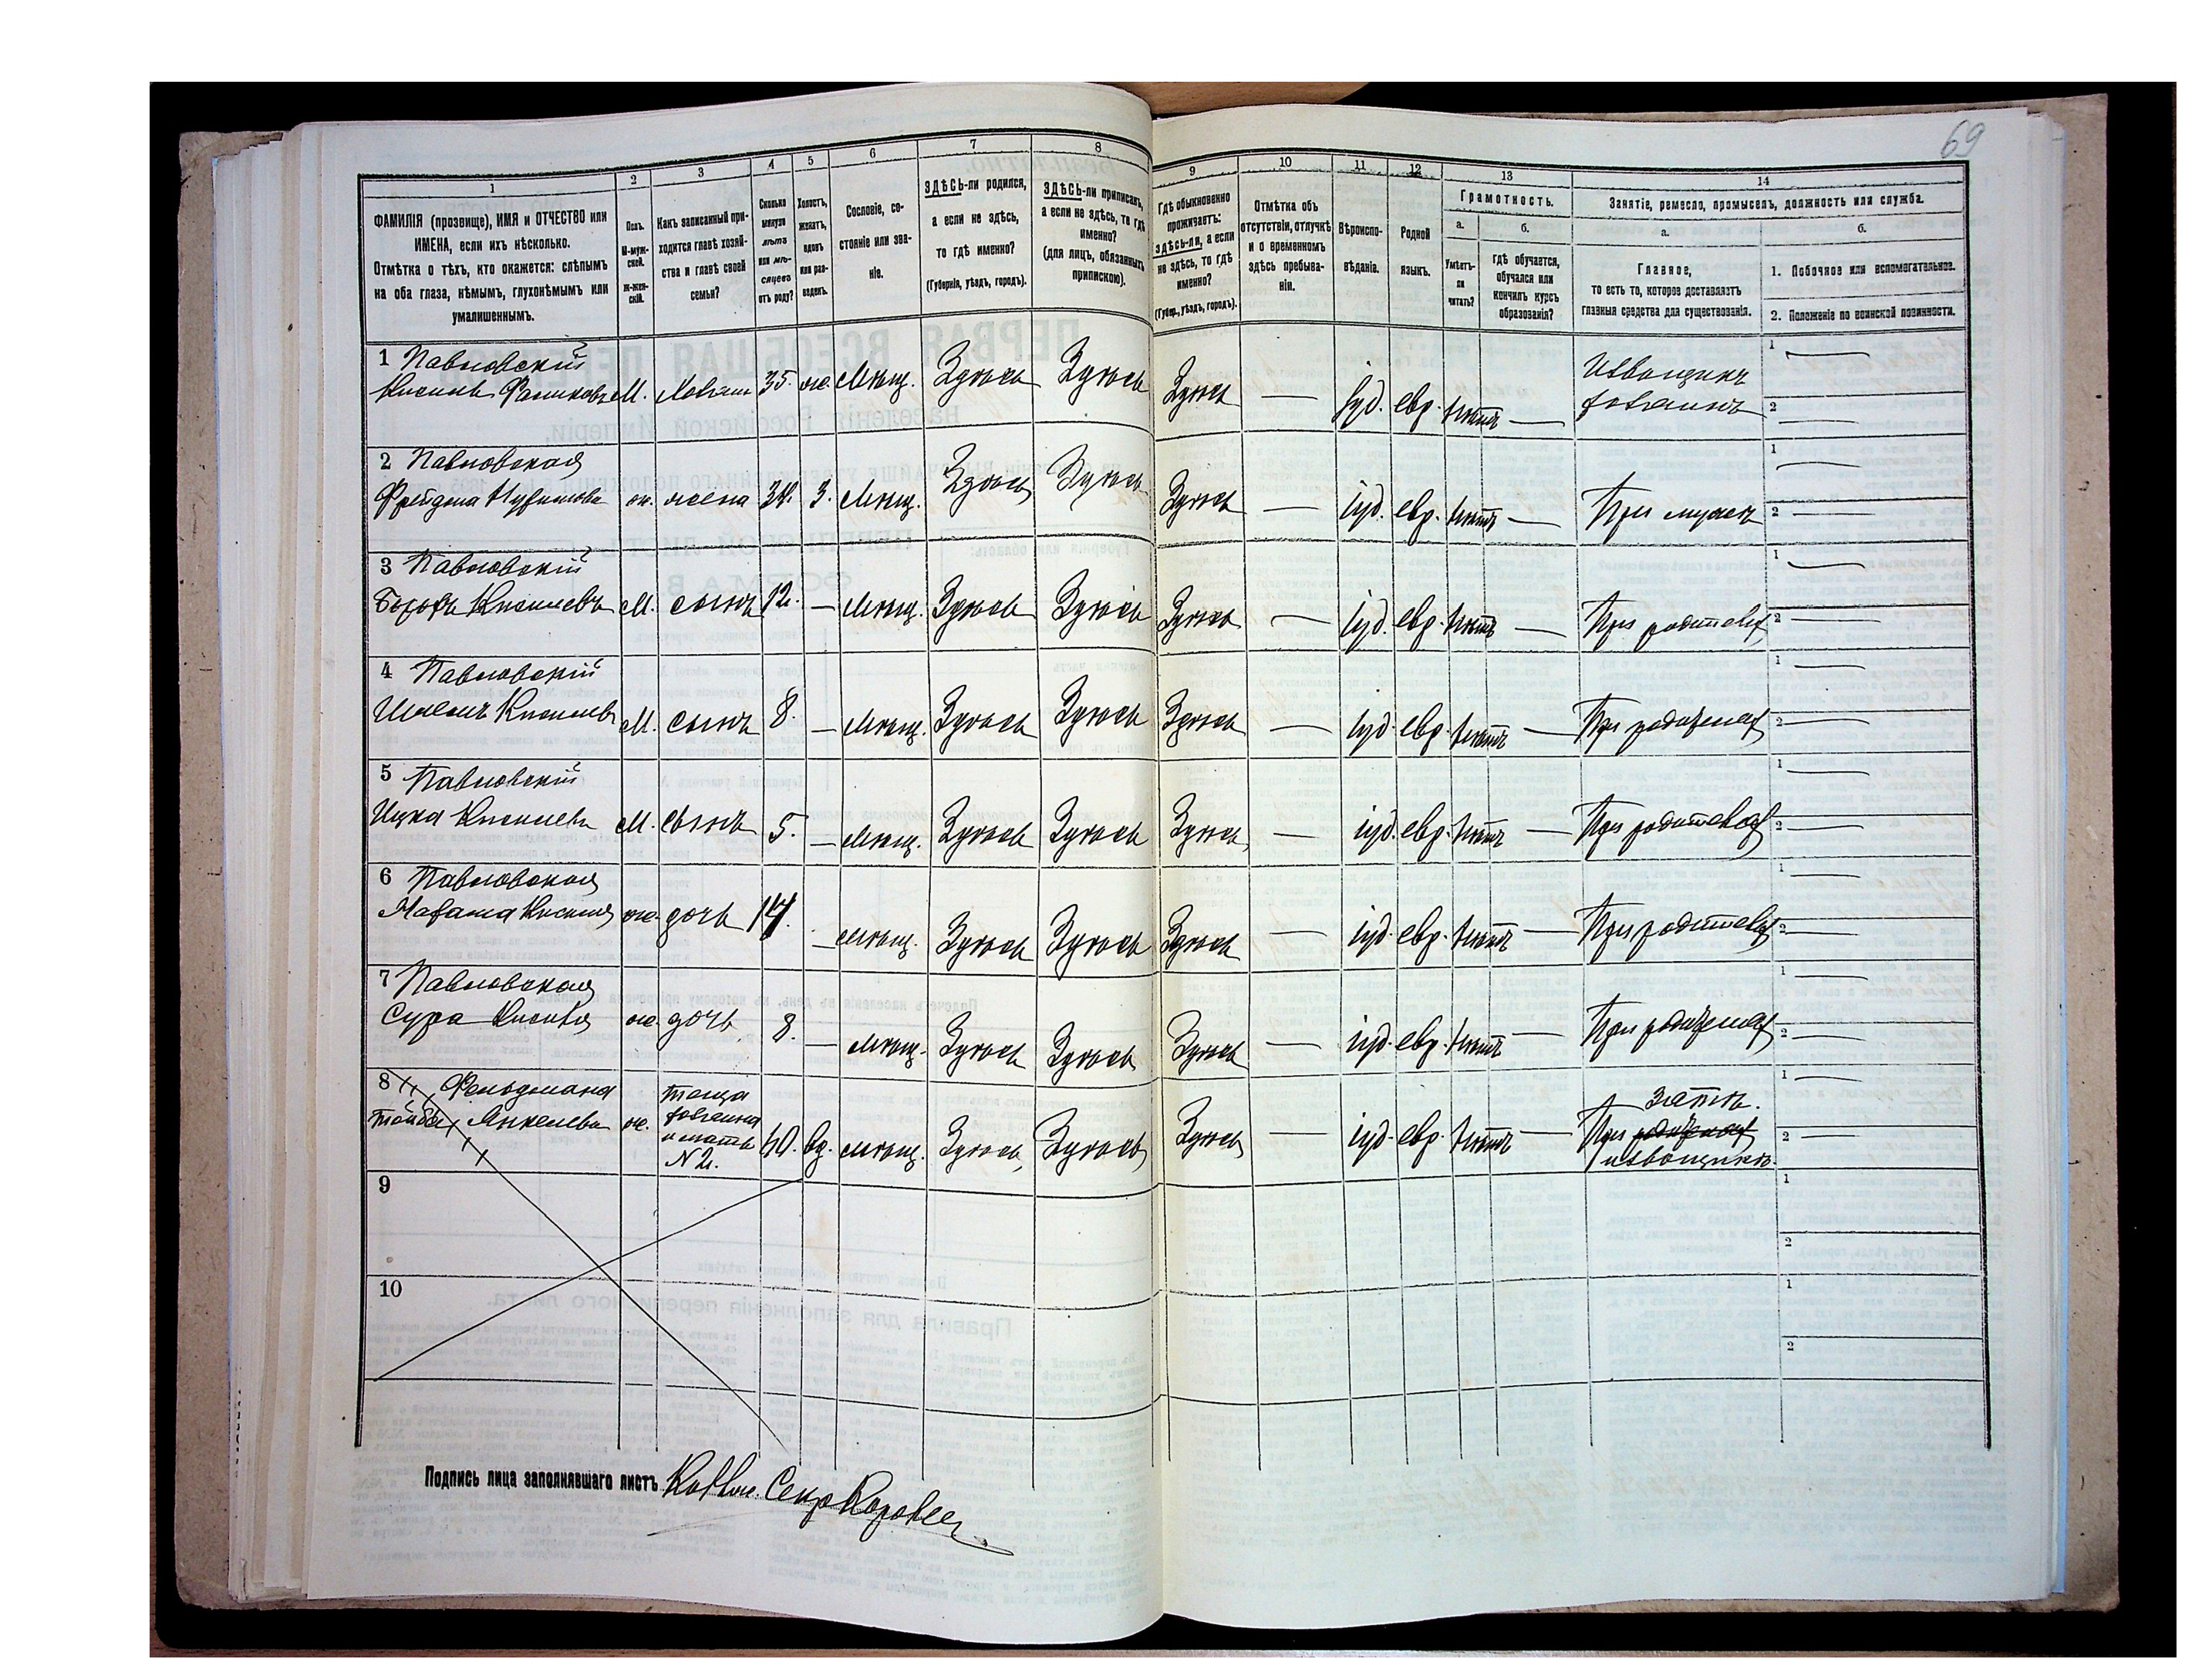 69
1
2
3
4
5
6
7
8
9
10
11
12
13
14
ФАМИЛІЯ (прозвище), ИМЯ и ОТЧЕСТВО или
ИМЕНА, если ихъ нѣсколько.
Отмѣтка о тѣхъ, кто окажется: слѣпымъ
на оба глаза, нѣмымъ, глухонѣмымъ или
умалишеннымъ.
Полъ.
М-муж-
ской.
Ж-жен-
скій.
Какъ записанный при-
ходится главѣ хозяй-
ства и главѣ своей
семьи?
Сколько
минуло
лѣтъ
или мѣ-
сяцевъ
отъ роду?
Холостъ,
женатъ,
вдовъ
или раз-
веденъ.
Сословіе, со-
стояніе или зва-
ніе.
ЗДѢСЬ-ли родился,
а если не здѣсь,
то гдѣ именно?
(Губернія, уѣздъ, городъ).
ЗДѢСЬ-ли приписанъ,
а если не здѣсь, то гдѣ
именно?
(для лицъ, обязанныхъ
припискою).
Гдѣ обыкновенно
проживаетъ:
здѣсь-ли, а если
не здѣсь, то гдѣ
именно?
(Губер., уѣздъ, городъ).
Отмѣтка объ
отсутствіи, отлучкѣ
и о временномъ
здѣсь пребыва-
ніи.
Вѣроиспо-
вѣданіе.
Родной
языкъ.
Грамотность.
а.
Умѣетъ-
ли
читать?
б.
гдѣ обучается,
обучался или
кончилъ курсъ
образованія?
Занятіе, ремесло, промыселъ, должность или служба.
а.
Главное,
то есть то, которое доставляетъ
главныя средства для существованія.
б.
1. Побочное или вспомогательное.
2. Положеніе по воинской повинности.
1 Павловскій
М. 35. ж. Мѣщ. Здѣсь Здѣсь Здѣсь — іуд. евр. нѣтъ — Извощикъ
1 —
2 —
2 Павловская
ж. жена 3. Мѣщ. Здѣсь Здѣсь Здѣсь — іуд. евр. нѣтъ — При мужѣ
1 —
2 —
3 Павловскій
М. сынъ 12. — Мѣщ. Здѣсь Здѣсь Здѣсь — іуд. евр. нѣтъ — При родителях
1 —
2 —
4 Павловскій
М. сынъ 8. — Мѣщ. Здѣсь Здѣсь Здѣсь — іуд. евр. нѣтъ — При родителях
1 —
2 —
5 Павловскій
Ицка М. сынъ 5. — Мѣщ. Здѣсь Здѣсь Здѣсь — іуд. евр. нѣтъ — При родителях
1 —
2 —
6 Павловская
ж. дочь 14. — Мѣщ. Здѣсь Здѣсь Здѣсь — іуд. евр. нѣтъ — При родителях
1 —
2 —
7 Павловская
Сура ж. дочь 8. — Мѣщ. Здѣсь Здѣсь Здѣсь — іуд. евр. нѣтъ — При родителях
1 —
2 —
8 Фельдмана
Янкелева ж. теща
и мать
N 2.
вд. мѣщ. Здѣсь Здѣсь Здѣсь — іуд. евр. нѣтъ — зятѣ.
При родителях
извощикѣ.
1 —
2 —
9
1
2
10
1
2
Подпись лица заполнявшаго листъ